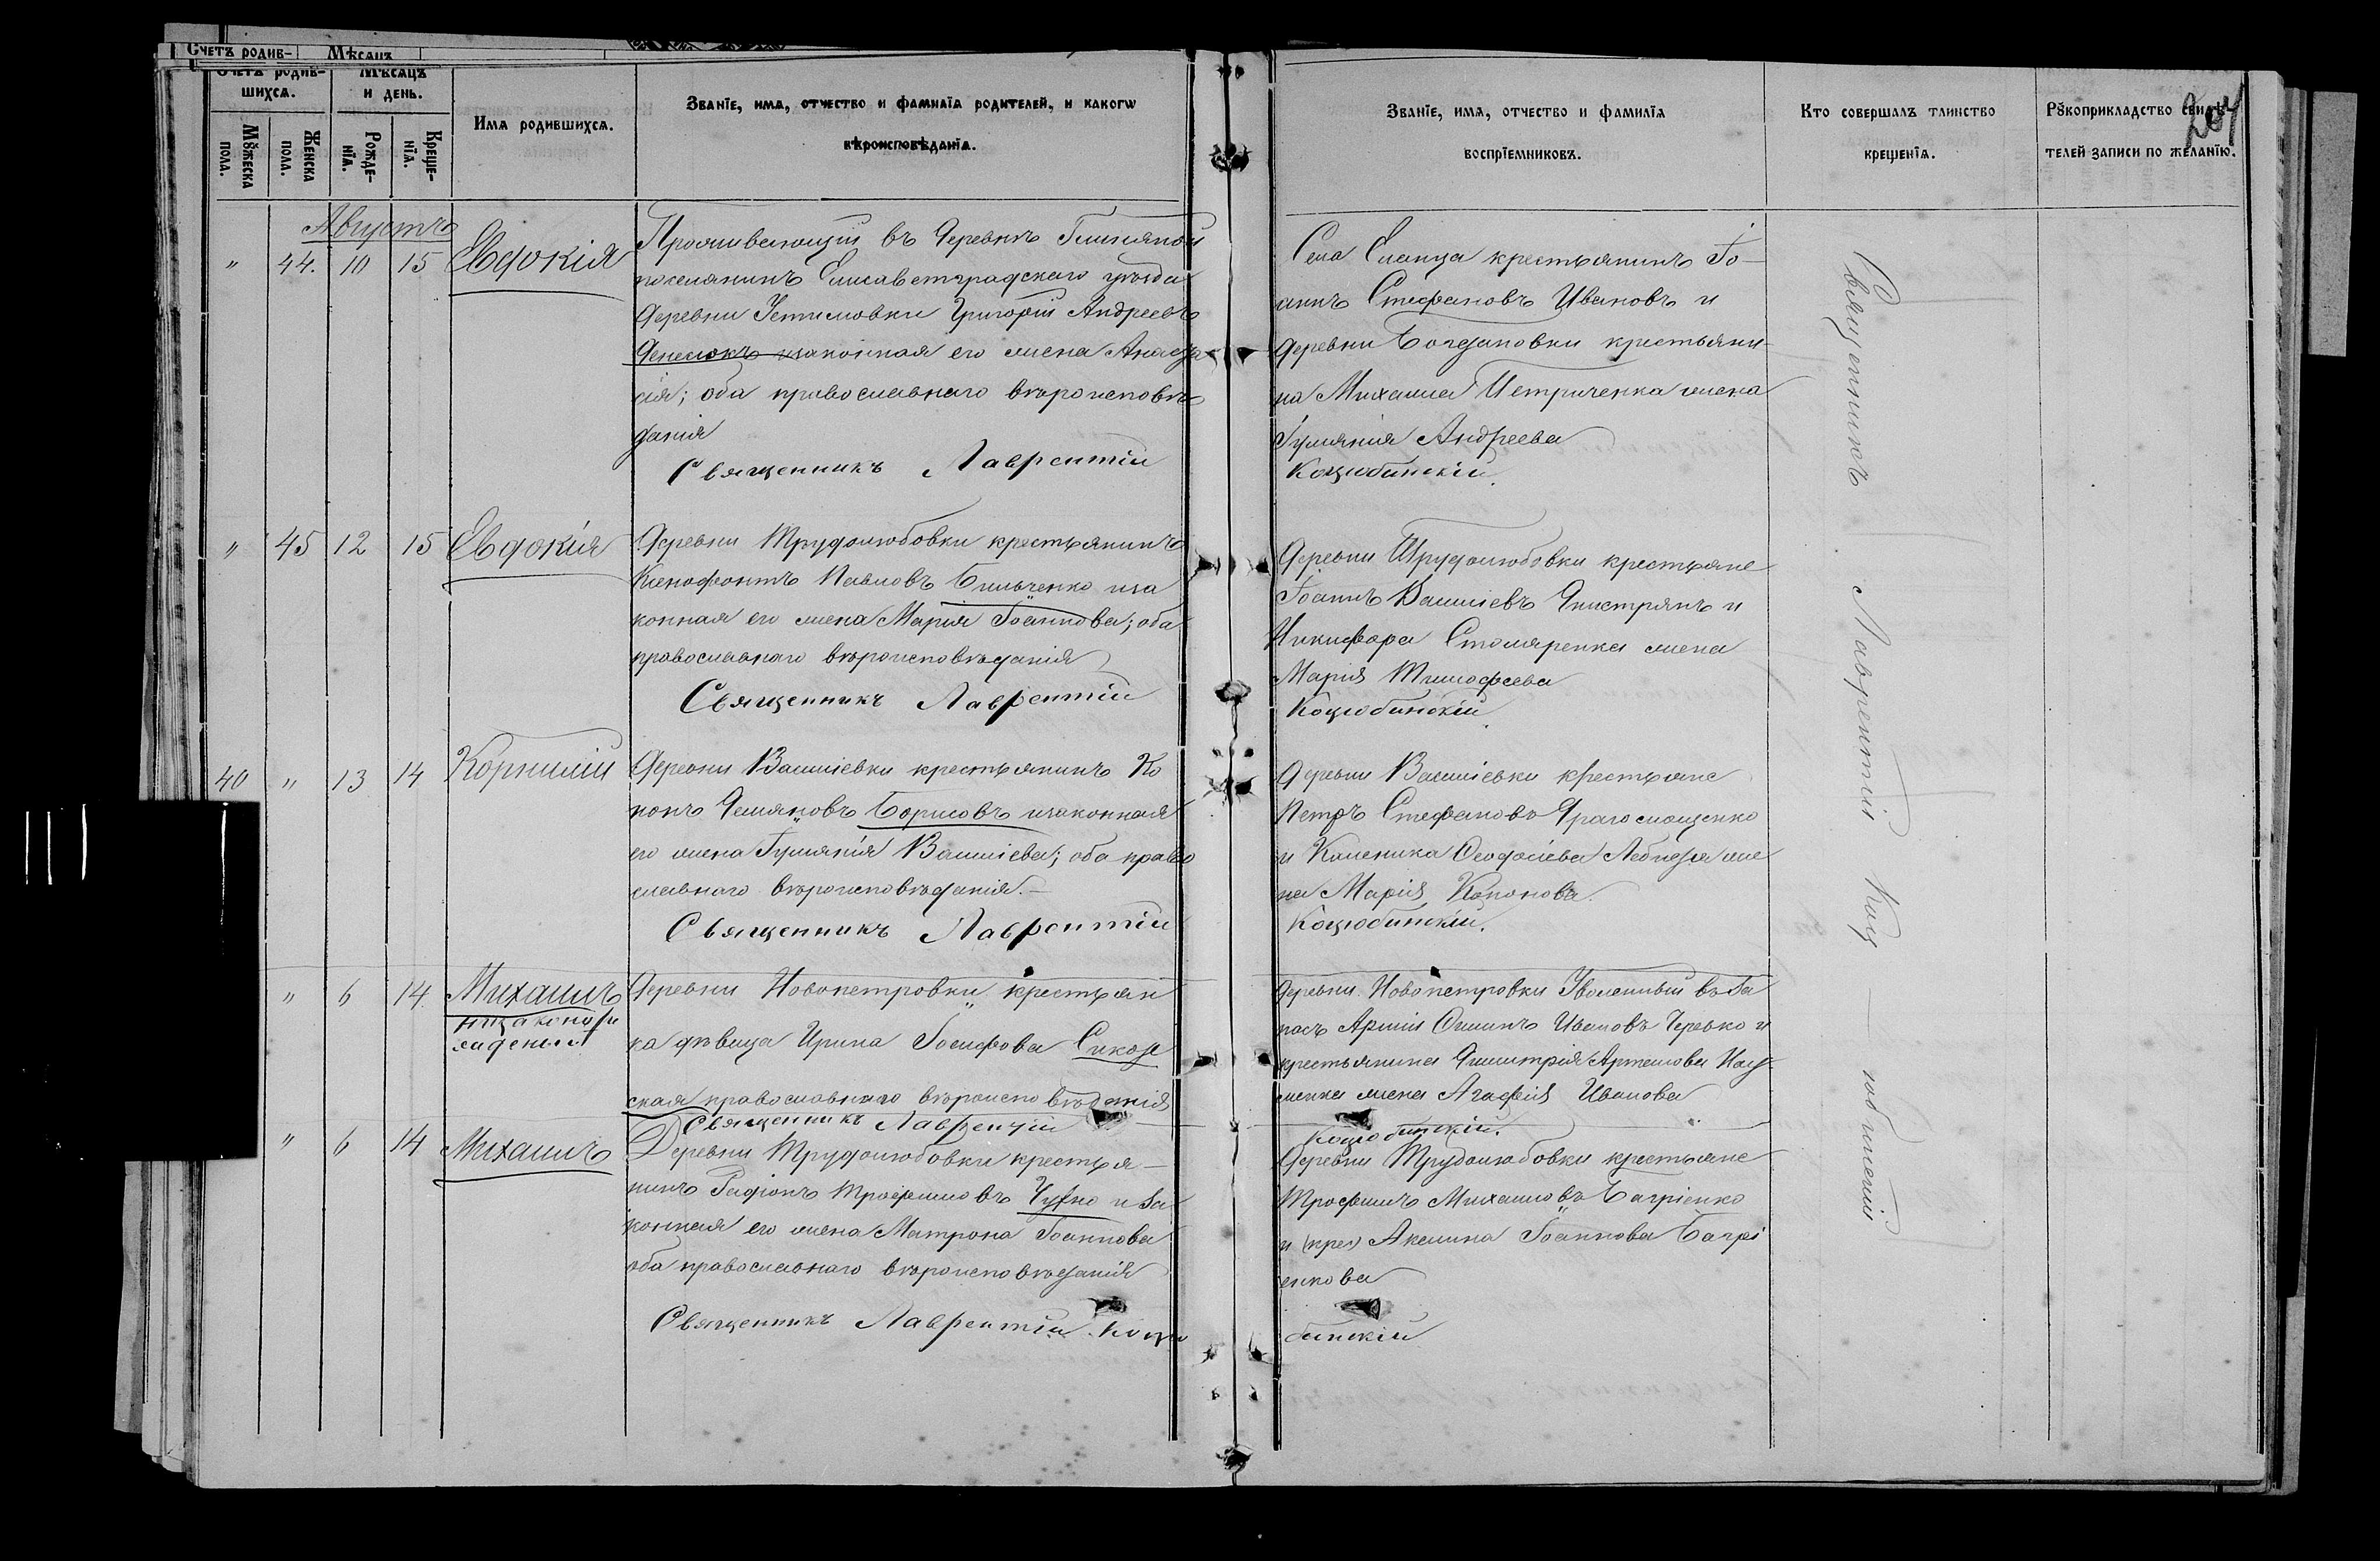 Счетъ родив- Мѣсяцъ
Счетъ родив-
шихся.
Мѣсяцъ
и день.
Мꙋжеска
пола.
Женска
пола.
Рожде-
нїя.
Креще-
нїя.
Имя родившихся.
Званїе, имя, отчество и фамилїа родителей, и какогѡ
вѣроисповѣданїя.
Званїе, имя, отчество и фамилїя
воспрїемниковъ.
Кто совершалъ таинство
крещенїя.
Рꙋкоприкладство свидѣ-
телей записи по желанїю.
204
Августъ
" 44. 10 15 Евдокія
Проживающій въ деревнѣ
поселянинъ Елисаветградскаго уѣзда
деревни Устимовки Григорій Андреевъ
законная его жена Анаста-
сія; оба православнаго вѣроисповѣ-
данія
Священникъ Лаврентій
Села Еланца крестьянинъ Іо-
аннъ Стефановъ Ивановъ и
деревни Богдановки крестьяни-
на Михаила Петриченка жена
Іуліанія Андреева
Коцюбинскій.
" 45 12 15 Евдокія
Деревни Трудолюбовки крестьянинъ
Ксенофонтъ Павловъ Бильченко иза
конная его жена Марія Іоаннова; оба
православнаго вѣроисповѣданія
Священникъ Лаврентій
Деревни Трудолюбовки крестьяне
Іоаннъ Василіевъ и
Никифора Столяренка жена
Марія Тимофеева
Коцюбинскій.
40 " 13 14 Корнилій
Деревни Василіевки крестьянинъ Ко
нонъ Демяновъ Борисовъ изаконная
его жена Іуліанія Василіева; оба право
славнаго вѣроисповѣданія.-
Священникъ Лаврентій
Деревни Василіевки крестьяне
Петръ Стефановъ
и Каленика Лебедя же
на Марія Кононова.
Коцюбинскій.
" 6 14. Михаилъ
Деревни Новопетровки крестьян
ка дѣвица Ирина Іосифова
ская православнаго вѣроисповѣданія
Священникъ Лаврентій
Деревни Новопетровки Уволенный въ За
пасъ Арміи Ивановъ Черевко и
крестьянина Димитрія Артемова
жена Агафія Иванова
Коцюбинскій.
" 6 14 Михаилъ
Деревни Трудолюбовки крестья-
нинъ Родіонъ Трофимовъ и за
конная его жена Матрона Іоаннова
оба православнаго вѣроисповѣданія
Священникъ Лаврентій Коцю
Деревни Трудолюбовки крестьяне
Трофимъ Михаиловъ Багріенко
и Акилина Іоаннова Багрі
енкова
бинскій
Священникъ Лаврентій Коцюбинскій